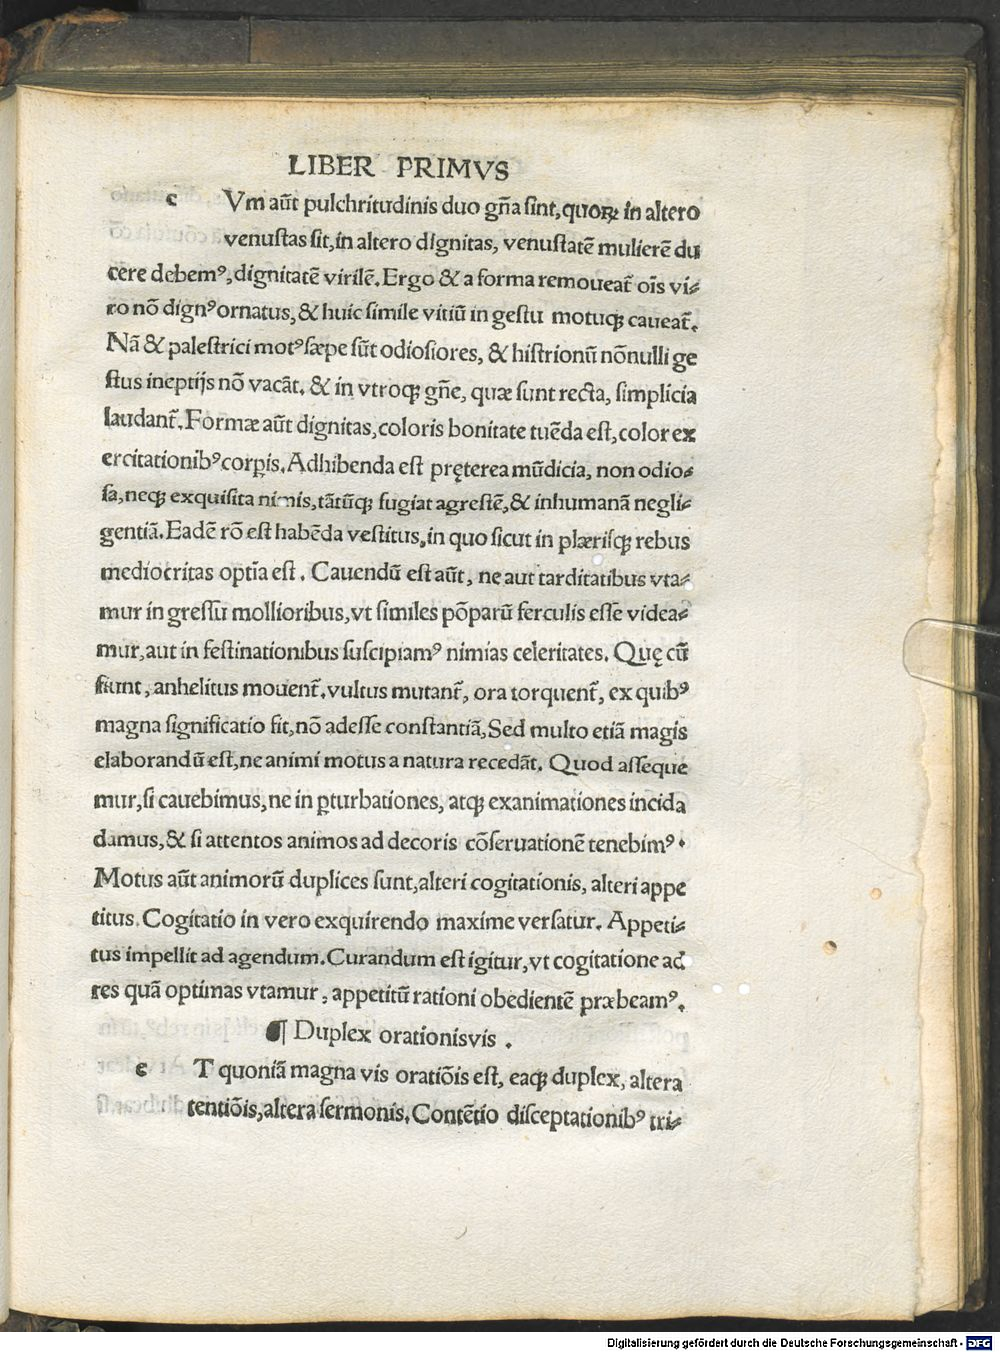 LIBER PRIMVS
c Vm aūt pulchritudinis duo gña sint, quoꝝ in altero
venustas sit, in altero dignitas, venustatē mulierē du
cere debemꝰ, dignitatē virilē. Ergo & a forma remoueat̄ oīs vi⸗
ro nō dignꝰ ornatus, & huic simile vitiū in gestu motuqꝫ caueat̄.
Nā & palestrici motꝰ sæpe sūt odiosiores, & histrionū nōnulli ge
stus ineptijs nō vacāt. & in vtroqꝫ gñe, quæ sunt recta, simplicia
laudant̄. Formæ aūt dignitas, coloris bonitate tuēda est, color ex
ercitationibꝰ corꝑis. Adhibenda est pręterea mūdicia, non odio⸗
sa, neqꝫ exquisita nimis, tātūqꝫ fugiat agrestē, & inhumanā negli⸗
gentiā. Eadē rō est habēda vestitus, in quo sicut in plærisqꝫ rebus
mediocritas optīa est. Cauendū est aūt, ne aut tarditatibus vta⸗
mur in gressū mollioribus, vt similes pōparū ferculis esse videa⸗
mur, aut in festinationibus suscipiamꝰ nimias celeritates. Quę cū
fiunt, anhelitus mouent̄. vultus mutant̄, ora torquent̄, ex quibꝰ
magna significatio fit, nō adesse constantiā, Sed multo etiā magis
elaborandū est, ne animi motus a natura recedāt. Quod asseque
mur, si cauebimus, ne in ꝑturbationes, atqꝫ exanimationes incida
damus, & si attentos animos ad decoris cōseruationē tenebimꝰ.
Motus aūt animorū duplices sunt, alteri cogitationis, alteri appe
titus. Cogitatio in vero exquirendo maxime versatur. Appeti⸗
tus impellit ad agendum. Curandum est igitur, vt cogitatione ad
res quā optimas vtamur, appetitū rationi obedientē præbeamꝰ.
¶ Duplex orationisvis.
e T quoniā magna vis oratiōis est, eaqꝫ duplex, altera
tentiōis, altera sermonis. Contētio disceptationibꝰ tri⸗
Digitalisierung gefördert durch die Deutsche Forschungsgemeinschaft - DFG